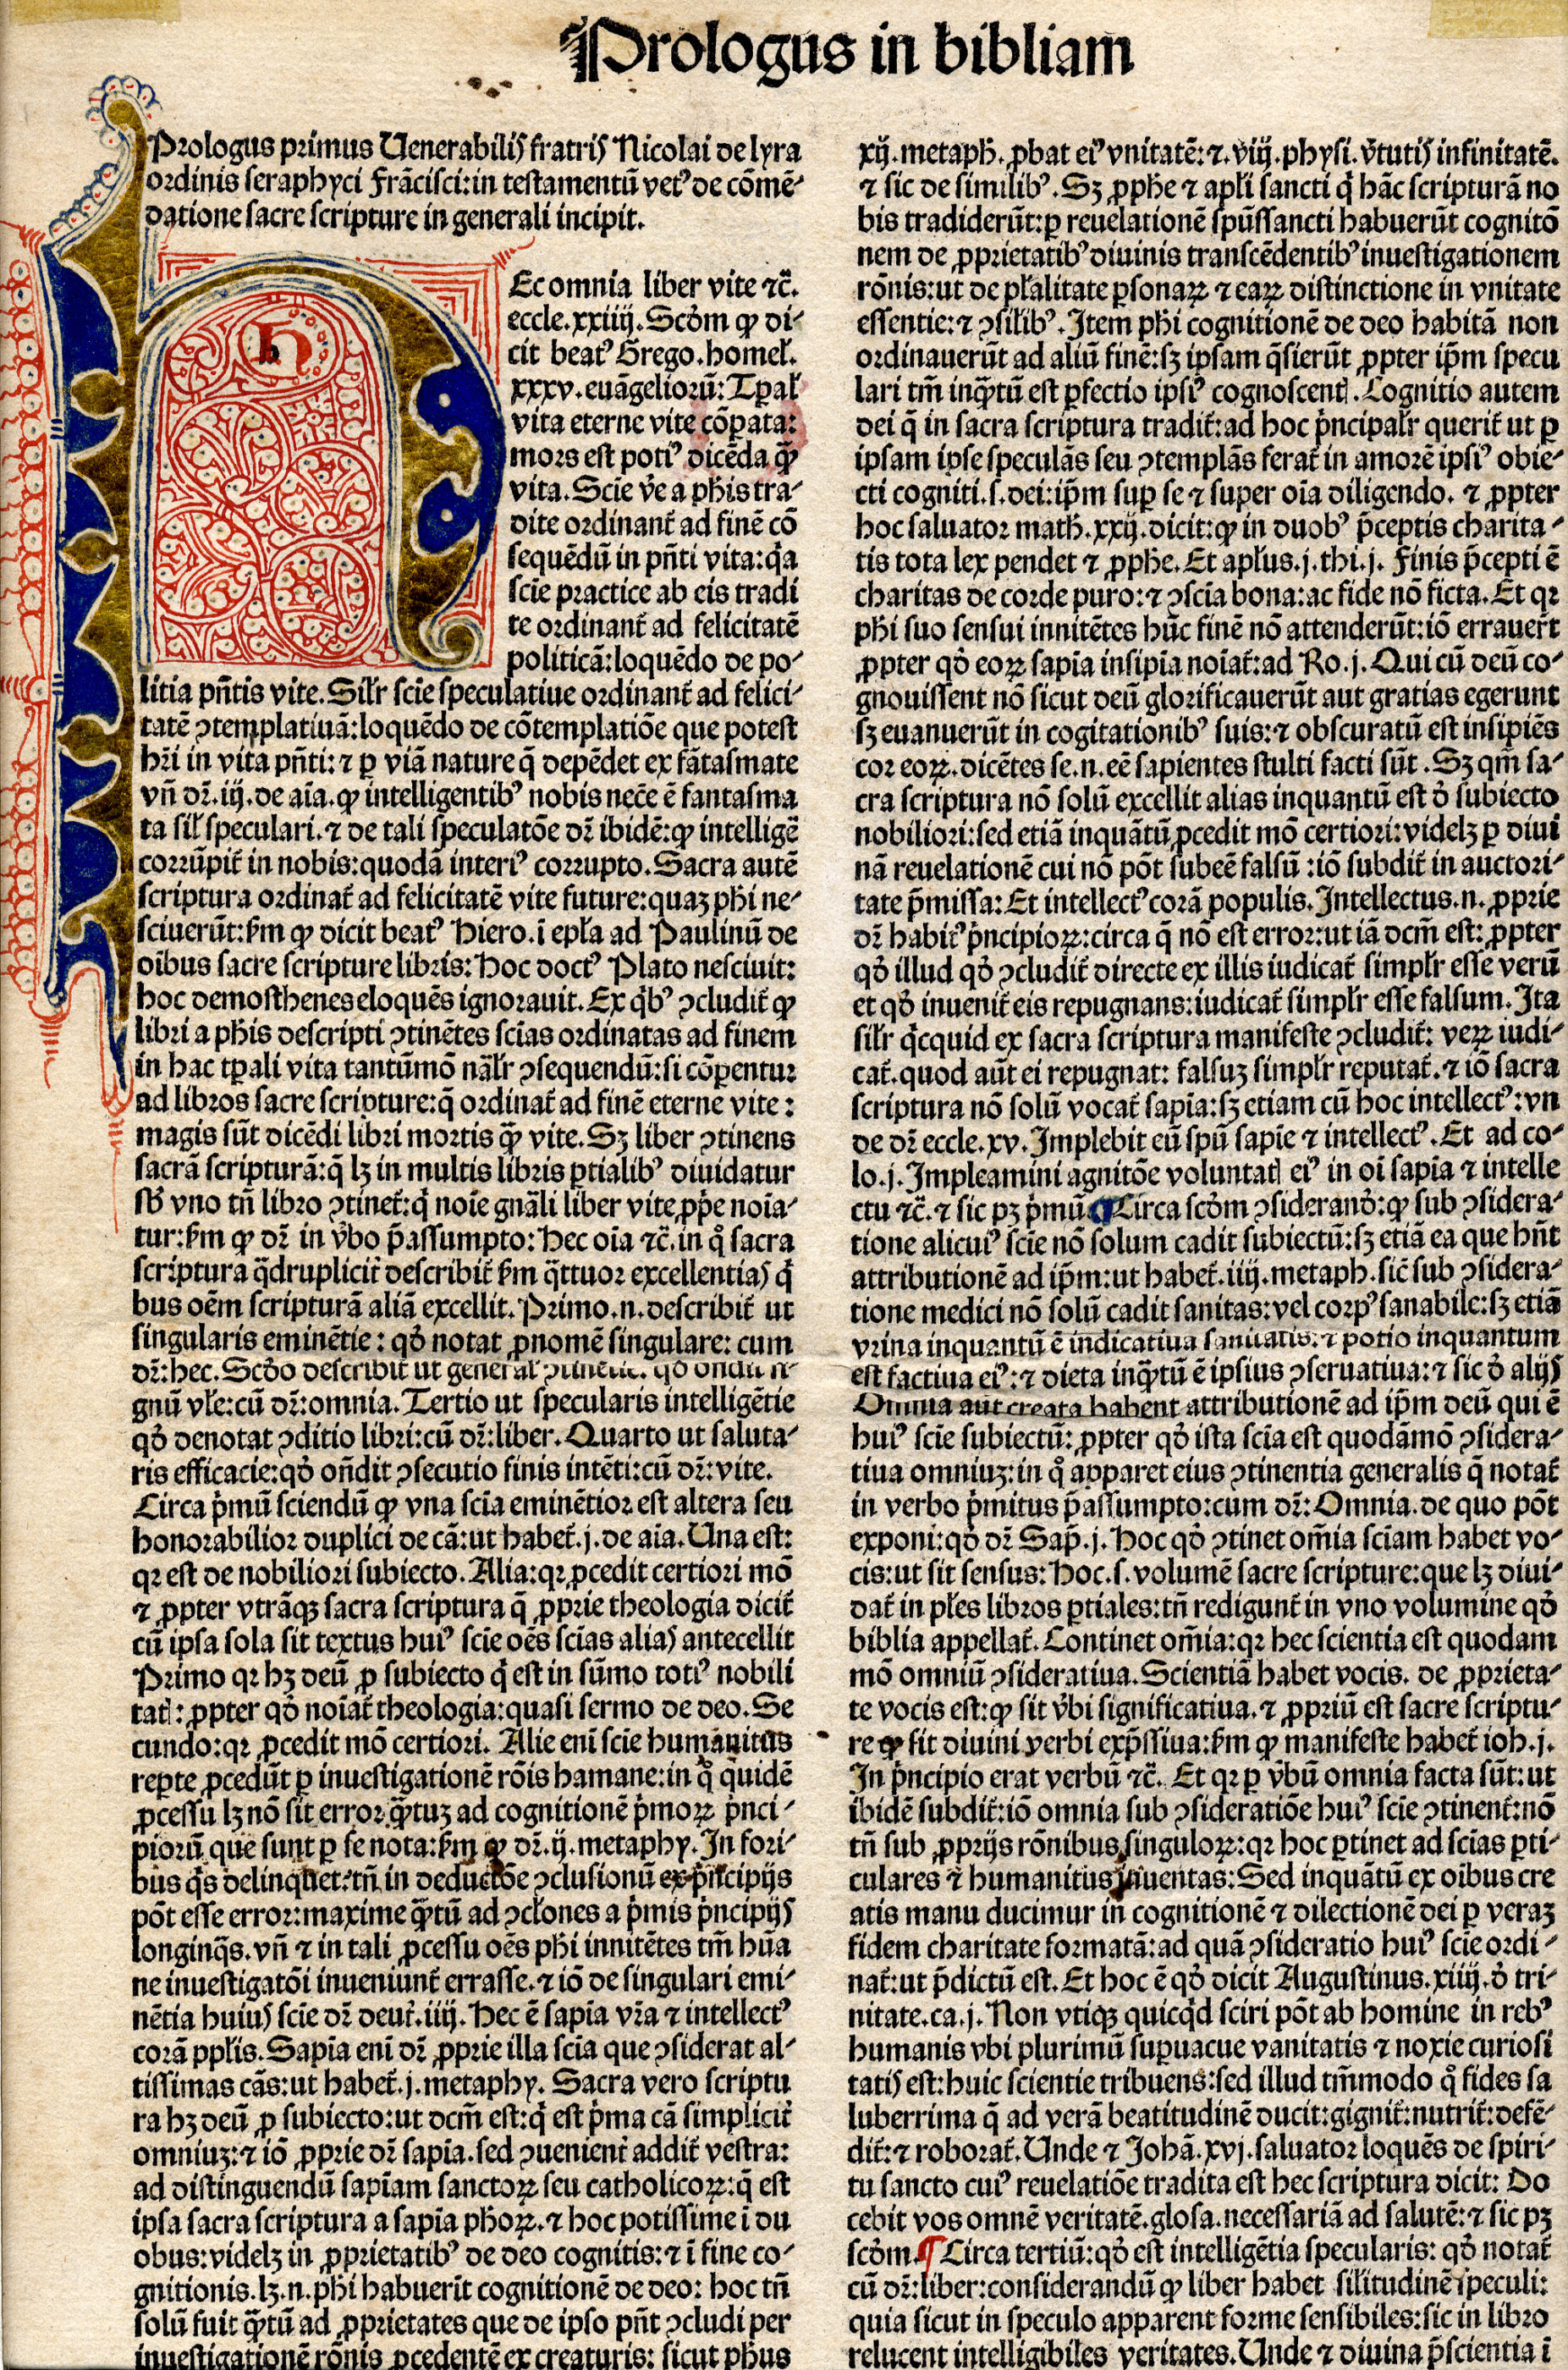 Prologus in bibliam
Prologus primus Uenerabilis fratris Nicolai de lyra
ordinis seraphyci frācisci: in testamentū vetꝰ de cōmē-
datione sacre scripture in generali incipit.
h
Ec omnia liber vite ⁊c̄.
eccle.xxiiij. Scd̓m ꝙ di-
cit beatꝰ Grego.homel.
xxxv.euāgeliorū: Tꝑal̄
vita eterne vite cōꝑata:
mors est potiꝰ dicēda ꝙ̄
vita. Scīe v̓e a ph̄is tra-
dite ordinant̄ ad finē cō
sequēdū in pn̄ti vita: q̄a
scīe practice ab eis tradi
te ordinant̄ ad felicitatē
politicā: loquēdo de po-
litia pn̄tis vite. Silr̄ scīe speculatiue ordinant̄ ad felici-
tatē ↄtemplatiuā: loquēdo de cōtemplatiōe que potest
hr̄i in vita pn̄ti: ⁊ ꝑ viā nature q̄ depēdet ex fātasmate
vn̄ dr̄.iij.de aīa. ꝙ intelligentibꝰ nobis nec̄e ē fantasma
ta sil̄ speculari. ⁊ de tali speculatōe dr̄ ibidē: ꝙ intelligē
corrūpit̄ in nobis: quodā interiꝰ corrupto. Sacra autē
scriptura ordinat̄ ad felicitatē vite future: quaꝫ phi ne-
sciuerūt: ẜm ꝙ dicit beatꝰ Hiero. ī epl̄a ad Paulinū de
oībus sacre scripture libris: Hoc doctꝰ Plato nesciuit:
hoc demosthenes eloquēs ignorauit. Ex q̇bꝰ ↄcludit̄ ꝙ
libri a ph̄is descripti ↄtinētes scīas ordinatas ad finem
in hac tꝑali vita tantūmō nāl̄r ↄsequendū: si cōꝑentur
ad libros sacre scripture: q̄ ordinat̄ ad finē eterne vite:
magis sūt dicēdi libri mortis ꝙ̄ vite. Sꝫ liber ↄtinens
sacrā scripturā: q̄ lꝫ in multis libris ꝑtialibꝰ diuidatur
sb̄ vno tn̄ libro ↄtinet̄: q̇ noīe gn̄ali liber vite ꝓp̄e noīa-
tur: ẜm ꝙ dr̄ in v̓bo p̄assumpto: Hec oīa ⁊c̄. in q̊ sacra
scriptura q̄druplicit̄ describit̄ ẜm q̄ttuor excellentias q̇
bus oēm scripturā aliā excellit. Primo.n.describit̄ ut
singularis eminētie: qd̓ notat ꝓnomē singulare: cum
dr̄: hec. Scd̓o describit̄ ut general̄
gnū vl̄e: cū dr̄: omnia. Tertio ut specularis intelligētie
qd̓ denotat ↄditio libri: cū dr̄: liber. Quarto ut saluta-
ris efficacie: qd̓ on̄dit ↄsecutio finis intēti: cū dr̄: vite.
Circa p̓mū sciendū ꝙ vna scīa eminētior est altera seu
honorabilior duplici de cā: ut habet̄.j.de aīa. Una est:
qꝛ est de nobiliori subiecto. Alia: qꝛ ꝓcedit certiori mō
⁊ ꝓpter vtrāqꝫ sacra scriptura q̄ ꝓprie theologia dicit̄
cū ipsa sola sit textus huiꝰ scīe oēs scīas alias antecellit
Primo qꝛ hꝫ deū ꝓ subiecto q̇ est in sūmo totiꝰ nobili
tatꝭ: ꝓpter qd̓ noīat̄ theologia: quasi sermo de deo. Se
cundo: qꝛ ꝓcedit mō certiori. Alie enī scīe humanitus
reꝑte ꝓcedūt ꝑ inuestigationē rōis hamane: in q̊ quidē
ꝓcessu lꝫ nō sit error ꝙ̄tuꝫ ad cognitionē p̓moꝝ p̓nci-
piorū que sunt ꝑ se nota: ẜm ꝙ dr̄.ij.metaphy. In fori-
bus q̇s delinquet: tn̄ in deductōe ↄclusionū ex p̓ncipijs
pōt esse error: maxime ꝙ̄tū ad ↄcl̄ones a p̓mis p̓ncipijs
longinq̄s. vn̄ ⁊ in tali ꝓcessu oēs phi innitētes tm̄ hūa
ne inuestigatōi inueniunt̄ errasse. ⁊ iō de singulari emi-
nētia huius scīe dr̄ deut̄.iiij. Hec ē sapīa vr̄a ⁊ intellectꝰ
corā ppl̄is. Sapīa enī dr̄ ꝓprie illa scīa que ↄsiderat al-
tissimas cās: ut habet̄.j.metaphy. Sacra vero scriptu
ra hꝫ deū ꝓ subiecto: ut dcm̄ est: q̇ est p̓ma cā simplicit̄
omniuꝫ: ⁊ iō ꝓprie dr̄ sapīa. sed ↄuenient̄ addit̄ vestra:
ad distinguendū sapīam sanctoꝝ seu catholicoꝝ: q̄ est
ipsa sacra scriptura a sapīa ph̄oꝝ. ⁊ hoc potissime ī du
obus: videlꝫ in ꝓprietatibꝰ de deo cognitis: ⁊ ī fine co-
gnitionis. lꝫ.n.phi habuerīt cognitionē de deo: hoc tn̄
solū fuit ꝙ̄tū ad ꝓprietates que de ipso pn̄t ↄcludi per
inuestigationē rōnis ꝓcedentē ex creaturis: sicut ph̄us
xij.metaph̄. ꝓbat eiꝰ vnitatē: ⁊.viij.physi. v̓tutis infinitatē.
⁊ sic de similibꝰ. Sꝫ ꝓphe ⁊ apl̄i sancti q̇ hāc scripturā no
bis tradiderūt: ꝑ reuelationē spūssancti habuerūt cognitō
nem de ꝓprietatibꝰ diuinis transcēdentibꝰ inuestigationem
rōnis: ut de pl̄alitate ꝑsonaꝝ ⁊ eaꝝ distinctione in vnitate
essentie: ⁊ ↄsil̄ibꝰ. Item phi cognitionē de deo habitā non
ordinauerūt ad aliū finē: sꝫ ipsam q̄sierūt ꝓpter ip̄m specu
lari tm̄ inꝙ̄tū est ꝑfectio ipsiꝰ cognoscentꝭ. Cognitio autem
dei q̄ in sacra scriptura tradit̄: ad hoc p̓ncipalr̄ querit̄ ut ꝑ
ipsam ipse speculās seu ↄtemplās ferat̄ in amorē ipsiꝰ obie-
cti cogniti.s.dei: ip̄m suꝑ se ⁊ super oīa diligendo. ⁊ ꝓpter
hoc saluator math̄.xxij.dicit: ꝙ in duobꝰ p̄ceptis charita-
tis tota lex pendet ⁊ ꝓphe. Et apl̄us.j.thi.j. Finis p̄cepti ē
charitas de corde puro: ⁊ ↄscīa bona: ac fide nō ficta. Et qꝛ
phi suo sensui innitētes hūc finē nō attenderūt: iō errauer̄t
ꝓpter qd̓ eoꝝ sapīa insipīa noīat̄: ad Ro.j. Qui cū deū co-
gnouissent nō sicut deū glorificauerūt aut gratias egerunt
sꝫ euanuerūt in cogitationibꝰ suis: ⁊ obscuratū est insipiēs
cor eoꝝ. dicētes se.n.eē sapientes stulti facti sūt. Sꝫ qm̄ sa-
cra scriptura nō solū excellit alias inquantū est d̓ subiecto
nobiliori: sed etiā inquātū ꝓcedit mō certiori: videlꝫ ꝑ diui
nā reuelationē cui nō pōt subeē falsū: iō subdit̄ in auctori-
tate p̄missa: Et intellectꝰ corā populis. Intellectus.n.ꝓprie
dr̄ habitꝰ p̓ncipioꝝ: circa q̄ nō est error: ut iā dcm̄ est: ꝓpter
qd̓ illud qd̓ ↄcludit̄ directe ex illis iudicat̄ simplr̄ esse verū
et qd̓ inuenit̄ eis repugnans: iudicat̄ simplr̄ esse falsum. Ita
silr̄ q̇cquid ex sacra scriptura manifeste ↄcludit̄: veꝝ iudi-
cat̄. quod aūt ei repugnat: falsuꝫ simplr̄ reputat̄. ⁊ iō sacra
scriptura nō solū vocat̄ sapīa: sꝫ etiam cū hoc intellectꝰ: vn
de dr̄ eccle.xv. Implebit eū spū sapīe ⁊ intellectꝰ. Et ad co-
lo.j. Impleamini agnitōe voluntatꝭ eiꝰ in oī sapīa ⁊ intelle
ctu ⁊c̄. ⁊ sic pꝫ p̓mū ¶Circa scd̓m ↄsiderand̓: ꝙ sub ↄsidera-
tione alicuiꝰ scīe nō solum cadit subiectū: sꝫ etiā ea que hn̄t
attributionē ad ip̄m: ut habet̄.iiij.metaph. sic̄ sub ↄsidera-
tione medici nō solū cadit sanitas: vel corpꝰ sanabile: sꝫ etiā
vrina inquantū ē indicatiua sanitatis: ⁊ potio inquantum
est factiua eiꝰ: ⁊ dieta inꝙ̄tū ē ipsius ↄseruatiua: ⁊ sic d̓ alijs
Omnia aūt creata habent attributionē ad ip̄m deū qui ē
huiꝰ scīe subiectū: ꝓpter qd̓ ista scīa est quodāmō ↄsidera-
tiua omniuꝫ: in q̊ apparet eius ↄtinentia generalis q̄ notat̄
in verbo p̓mitus p̄assumpto: cum dr̄: Omnia. de quo pōt
exponi: qd̓ dr̄ Sap̄.j. Hoc qd̓ ↄtinet om̄ia scīam habet vo-
cis: ut sit sensus: Hoc.s.volumē sacre scripture: que lꝫ diui-
dat̄ in pl̄es libros ꝑtiales: tn̄ redigunt̄ in vno volumine qd̓
biblia appellat̄. Continet om̄ia: qꝛ hec scientia est quodam
mō omniū ↄsideratiua. Scientiā habet vocis. de ꝓprieta-
te vocis est: ꝙ sit v̓bi significatiua. ⁊ ꝓpriū est sacre scriptu-
re ꝙ sit diuini verbi exp̄ssiua: ẜm ꝙ manifeste habet̄ ioh.j.
In p̓ncipio erat verbū ⁊c̄. Et qꝛ ꝑ v̓bū omnia facta sūt: ut
ibidē subdit̄: iō omnia sub ↄsideratiōe huiꝰ scīe ↄtinent̄: nō
tn̄ sub ꝓprijs rōnibus singuloꝝ: qꝛ hoc ꝑtinet ad scīas ꝑti-
culares ⁊ humanitus inuentas: Sed inquātū ex oībus cre
atis manu ducimur in cognitionē ⁊ dilectionē dei ꝑ veraꝫ
fidem charitate formatā: ad quā ↄsideratio huiꝰ scīe ordi-
nat̄: ut p̄dictū est. Et hoc ē qd̓ dicit Augustinus.xiiij.d̓ tri-
nitate.ca.j. Non vtiqꝫ quicq̇d sciri pōt ab homine in rebꝰ
humanis vbi plurimū suꝑuacue vanitatis ⁊ noxie curiosi
tatis est: huic scientie tribuens: sed illud tm̄modo q̊ fides sa
luberrima q̄ ad verā beatitudinē ducit: gignit̄: nutrit̄: defē-
dit̄: ⁊ roborat̄. Unde ⁊ Johā.xvj.saluator loquēs de spiri-
tu sancto cuiꝰ reuelatiōe tradita est hec scriptura dicit: Do
cebit vos omnē veritatē. glosa. necessariā ad salutē: ⁊ sic pꝫ
scd̓m. ¶Circa tertiū: qd̓ est intelligētia specularis: qd̓ notat̄
cū dr̄: liber: considerandū ꝙ liber habet sil̄itudinē speculi:
quia sicut in speculo apparent forme sensibiles: sic in libro
relucent intelligibiles veritates. Unde ⁊ diuina p̄scientia ī